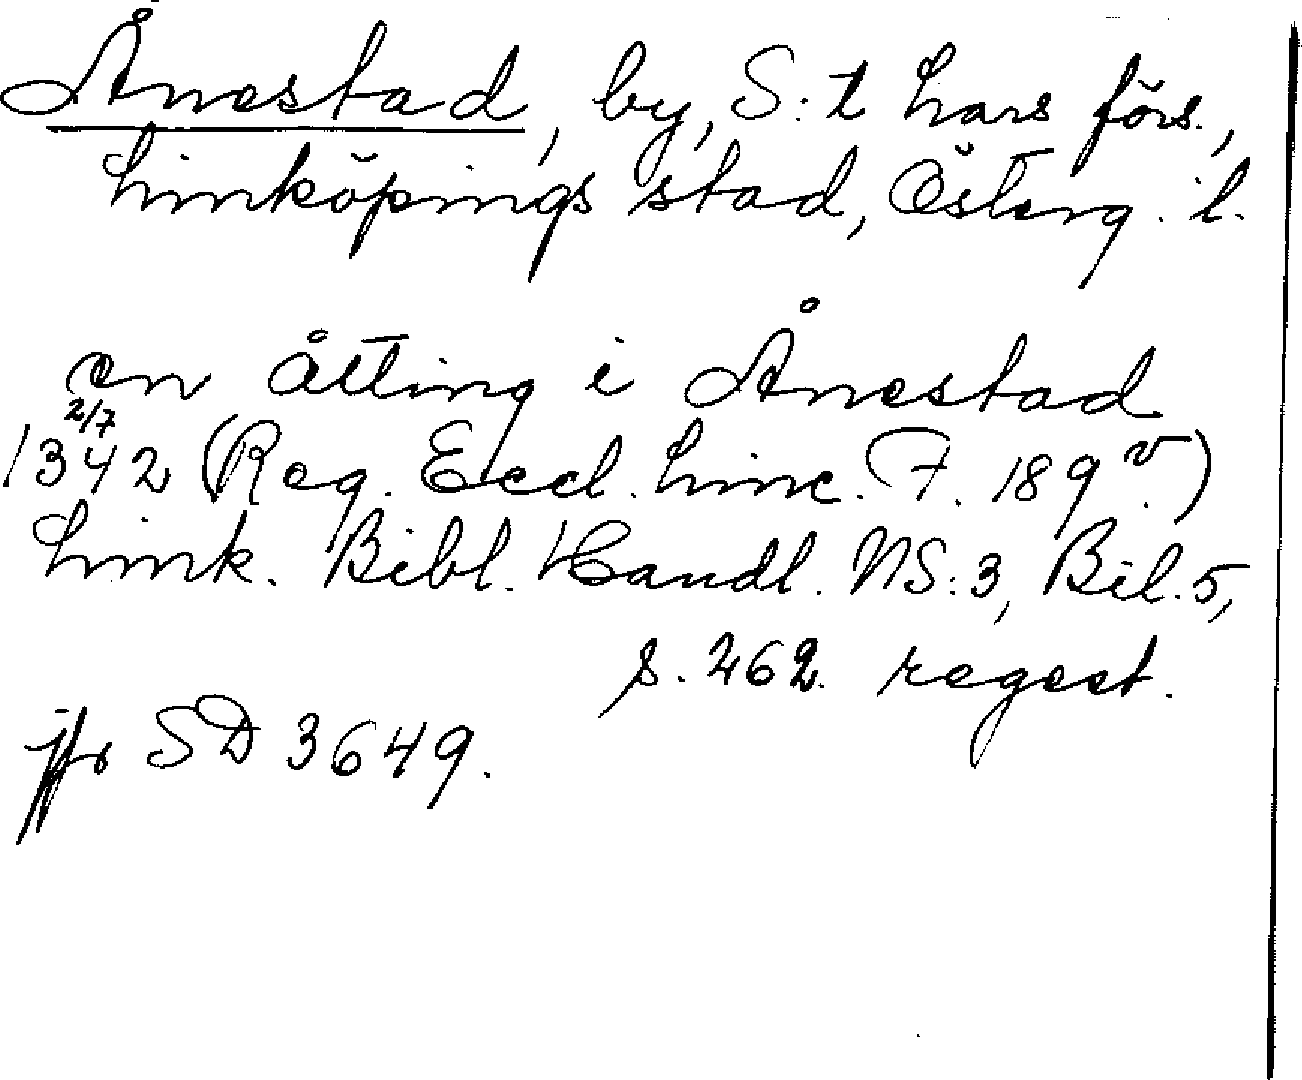 Ånestad, by, S:t Lars förs.,
Linköpings stad, Österg. l.
en åtting i Ånestad
1342 2/7 (Reg. Eccl. Linc. F. 189 v.)
Link. Bibl. Handl. NS:3, Bil. 5,
s. 262. regest.
jfr SD 3649.